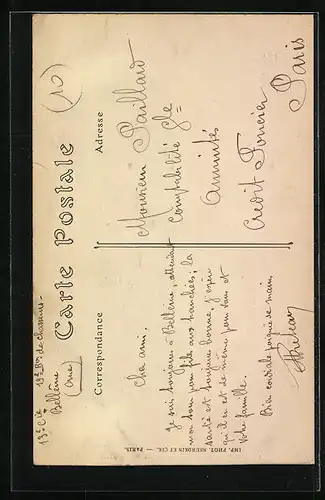 13e Cie 19e Bon de chasseurs -
Bellême
(Orne)
(10)
Carte Postale
Correspondance
Adresse
Cher ami.
Je suis toujours à Bellême, attendant
mon tour pour filer aux tranchées; la
santé est toujours bonne, j'espère
qu'il en est de même pour vous et
votre famille.
Bien cordiale poignée de main.
Monsieur Paillard
Comptabilité Gle
Annuités
Crédit Foncier
Paris
IMP. PHOT. NEURDEIN ET CIE. — PARIS.